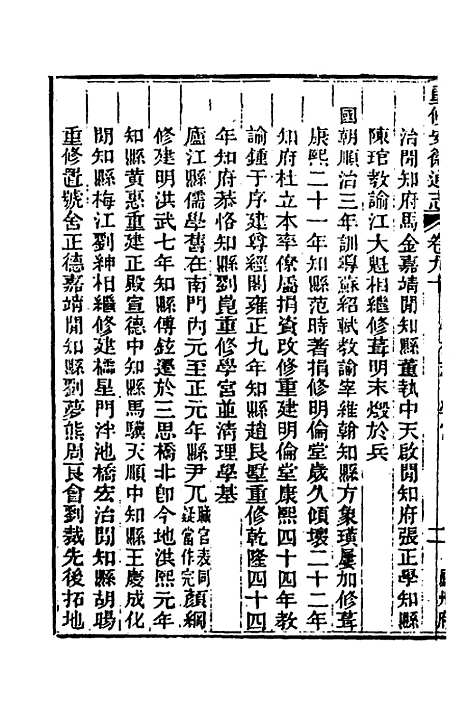 重修安徽通志 卷九十 二
治間知府馬金嘉靖間知縣董執中天啟間知府張正學知縣
陳琯教諭江大魁相繼修葺明末燬於兵
國朝順治三年訓導蘇紹軾教諭宰維翰知縣方象璜屢加修葺
康熙二十一年知縣范時著捐修明倫堂歲久傾壞二十二年
知府杜立本率僚屬捐資改修重建明倫堂康熙四十四年教
諭鍾于序建尊經閣雍正九年知縣趙良墅重修乾隆四十四
年知府恭恪知縣劉崑重修學宮並清理學基
廬江縣儒學舊在南門內元至正元年縣尹兀職官表同疑當作完顏綱
修建明洪武七年知縣傅鉉遷於三思橋北卽今地洪熙元年
知縣黃惠重建正殿宣德中知縣馬驥天順中知縣王慶成化
間知縣梅江劉紳相繼修建櫺星門泮池橋宏治間知縣胡暘
重修置號舍正德嘉靖間知縣劉夢熊周良會到裁先後拓地